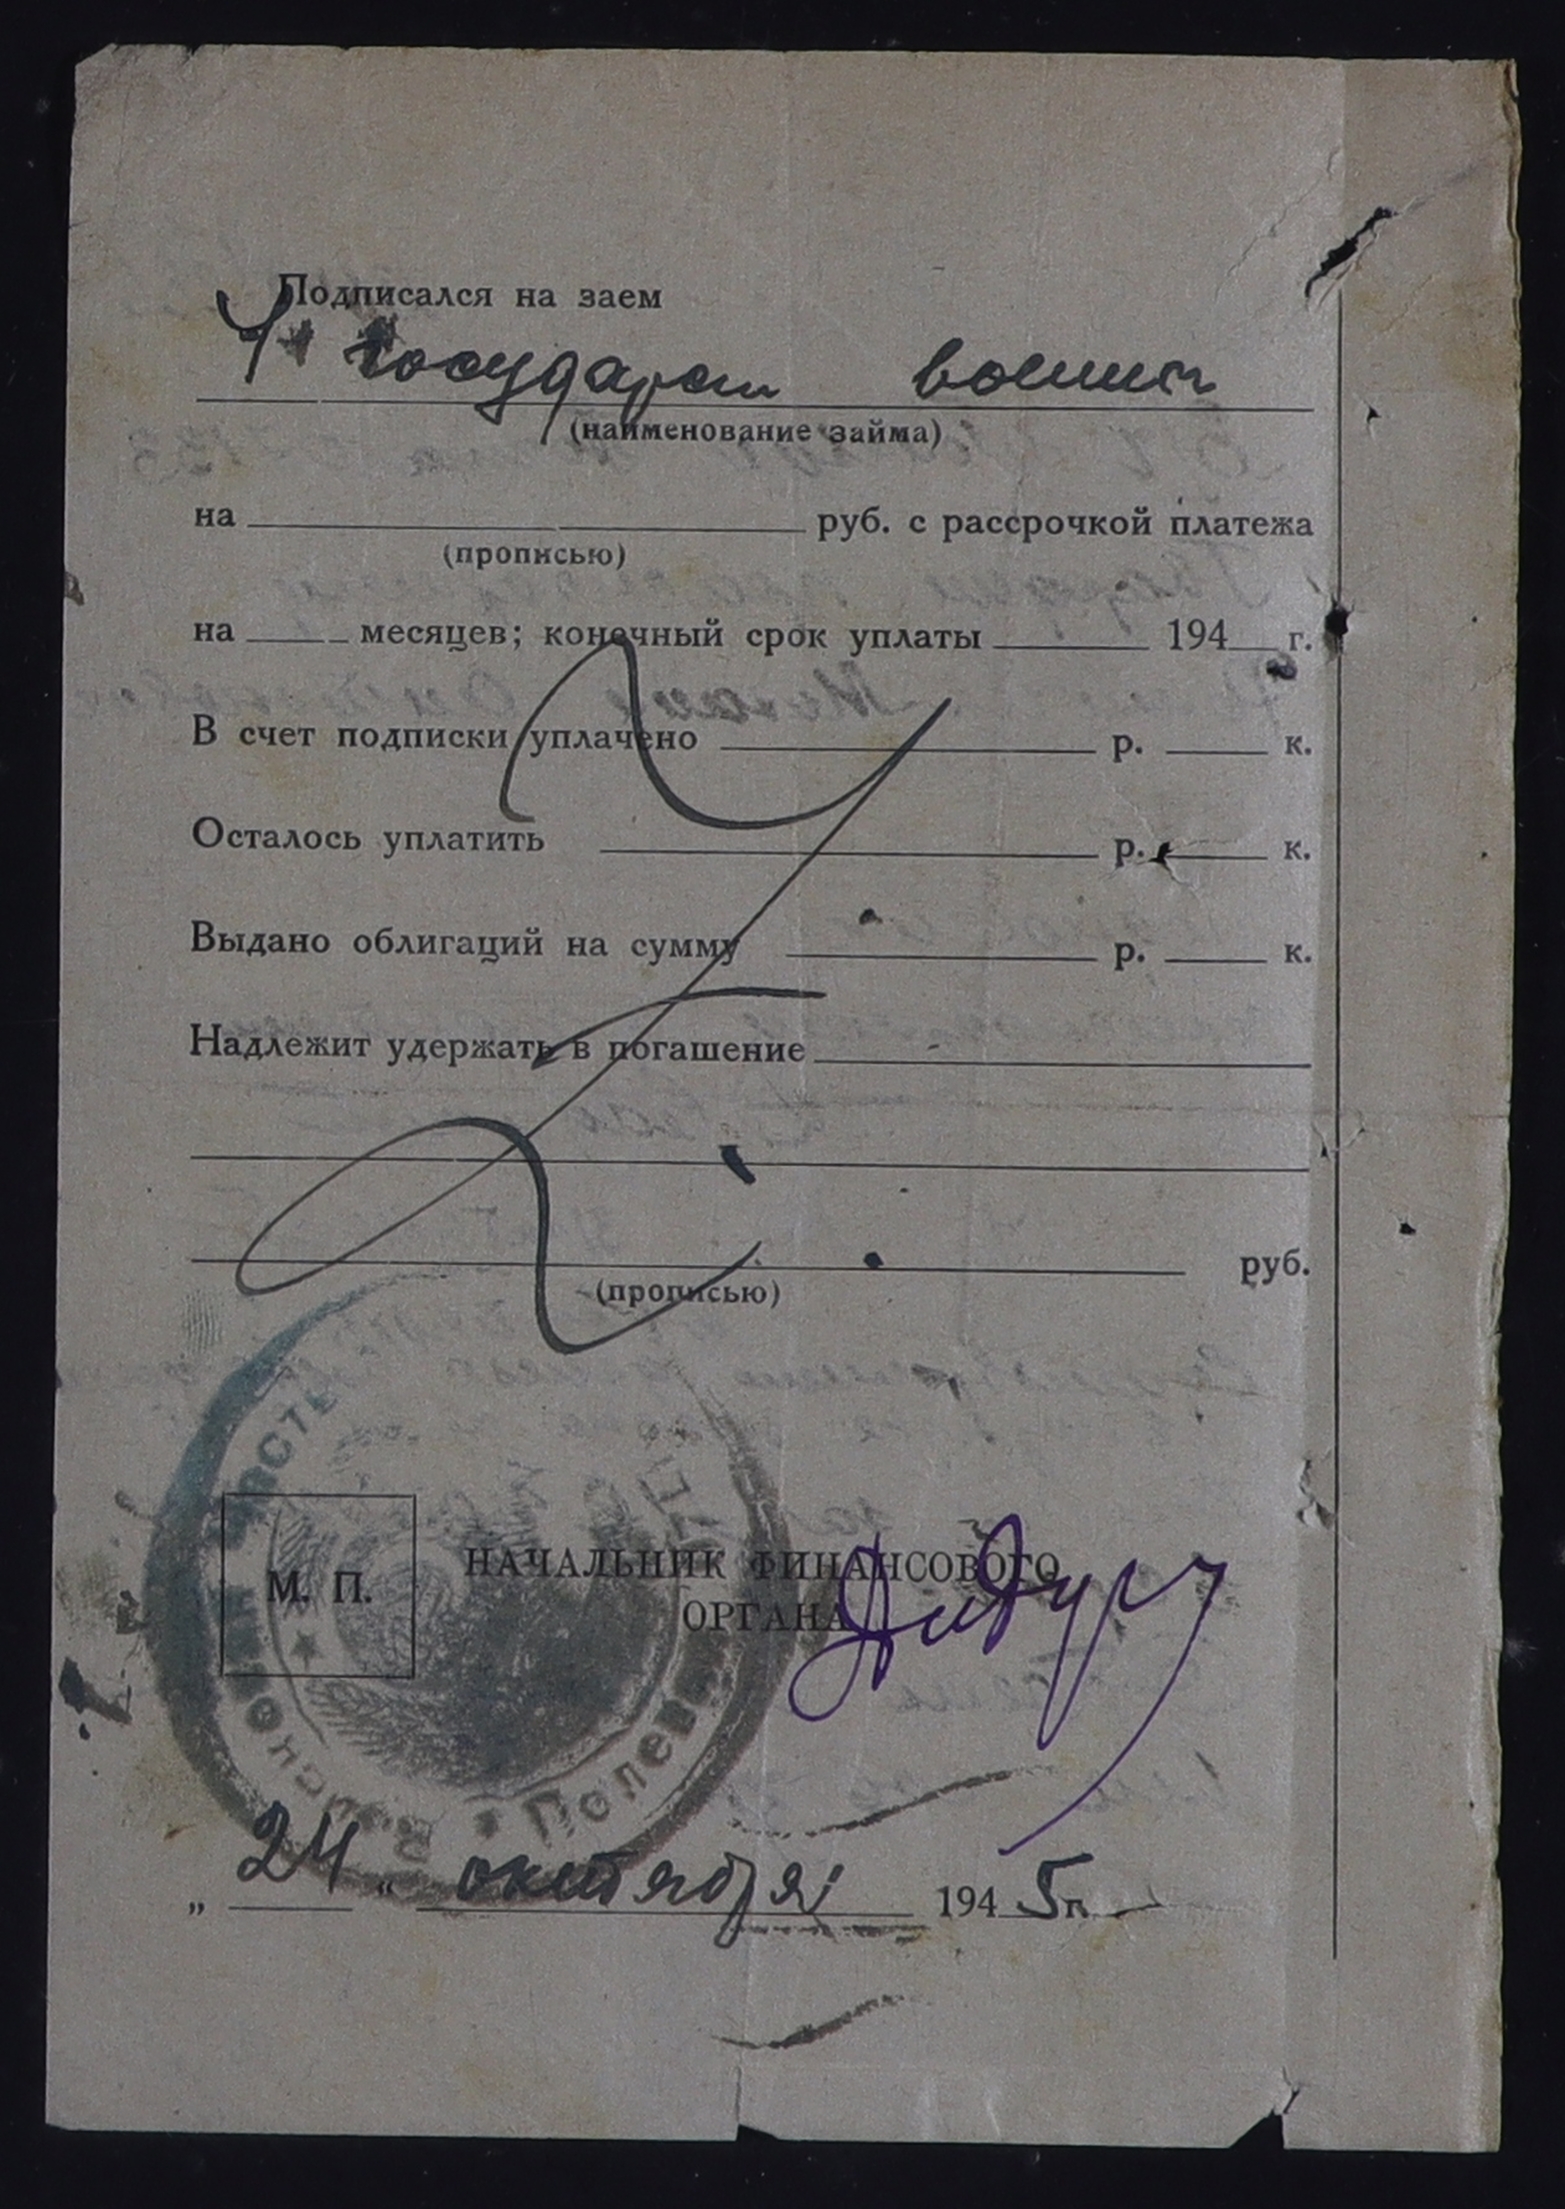 Подписался на заем
4й государств военный
(наименование займа)
на руб. с рассрочкой платежа
(прописью)
на месяцев; конечный срок уплаты 194 г.
В счет подписки уплачено р. к.
Осталось уплатить р. к.
Выдано облигаций на сумму р. к.
Надлежит удержать в погашение
руб.
(прописью)
М. П.
НАЧАЛЬНИК ФИНАНСОВОГО
ОРГАНА
„ 24 “ октября 1945 г.